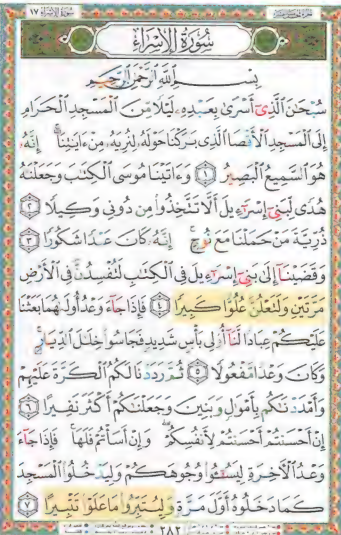 سُورَةُ الإِسْرَاءِ ١٧
سُورَةُ الإِسْرَاءِ
بِسْمِ ٱللَّهِ ٱلرَّحْمَٰنِ ٱلرَّحِيمِ
سُبْحَٰنَ ٱلَّذِىٓ أَسْرَىٰ بِعَبْدِهِۦ لَيْلًا مِّنَ ٱلْمَسْجِدِ ٱلْحَرَامِ
إِلَى ٱلْمَسْجِدِ ٱلْأَقْصَا ٱلَّذِى بَٰرَكْنَا حَوْلَهُۥ لِنُرِيَهُۥ مِنْ ءَايَٰتِنَآ ۚ إِنَّهُۥ
هُوَ ٱلسَّمِيعُ ٱلْبَصِيرُ ١ وَءَاتَيْنَا مُوسَى ٱلْكِتَٰبَ وَجَعَلْنَٰهُ
هُدًى لِّبَنِىٓ إِسْرَٰٓءِيلَ أَلَّا تَتَّخِذُوا۟ مِن دُونِى وَكِيلًا ٢
ذُرِّيَّةَ مَنْ حَمَلْنَا مَعَ نُوحٍ ۚ إِنَّهُۥ كَانَ عَبْدًا شَكُورًا ٣
وَقَضَيْنَآ إِلَىٰ بَنِىٓ إِسْرَٰٓءِيلَ فِى ٱلْكِتَٰبِ لَتُفْسِدُنَّ فِى ٱلْأَرْضِ
مَرَّتَيْنِ وَلَتَعْلُنَّ عُلُوًّا كَبِيرًا ٤ فَإِذَا جَآءَ وَعْدُ أُولَىٰهُمَا بَعَثْنَا
عَلَيْكُمْ عِبَادًا لَّنَآ أُو۟لِى بَأْسٍ شَدِيدٍ فَجَاسُوا۟ خِلَٰلَ ٱلدِّيَارِ ۚ
وَكَانَ وَعْدًا مَّفْعُولًا ٥ ثُمَّ رَدَدْنَا لَكُمُ ٱلْكَرَّةَ عَلَيْهِمْ
وَأَمْدَدْنَٰكُم بِأَمْوَٰلٍ وَبَنِينَ وَجَعَلْنَٰكُمْ أَكْثَرَ نَفِيرًا ٦
إِنْ أَحْسَنتُمْ أَحْسَنتُمْ لِأَنفُسِكُمْ ۖ وَإِنْ أَسَأْتُمْ فَلَهَا ۚ فَإِذَا جَآءَ
وَعْدُ ٱلْأَخِرَةِ لِيَسُۥٓـُٔوا۟ وُجُوهَكُمْ وَلِيَدْخُلُوا۟ ٱلْمَسْجِدَ
كَمَا دَخَلُوهُ أَوَّلَ مَرَّةٍ وَلِيُتَبِّرُوا۟ مَا عَلَوْا۟ تَتْبِيرًا ٧
٢٨٢